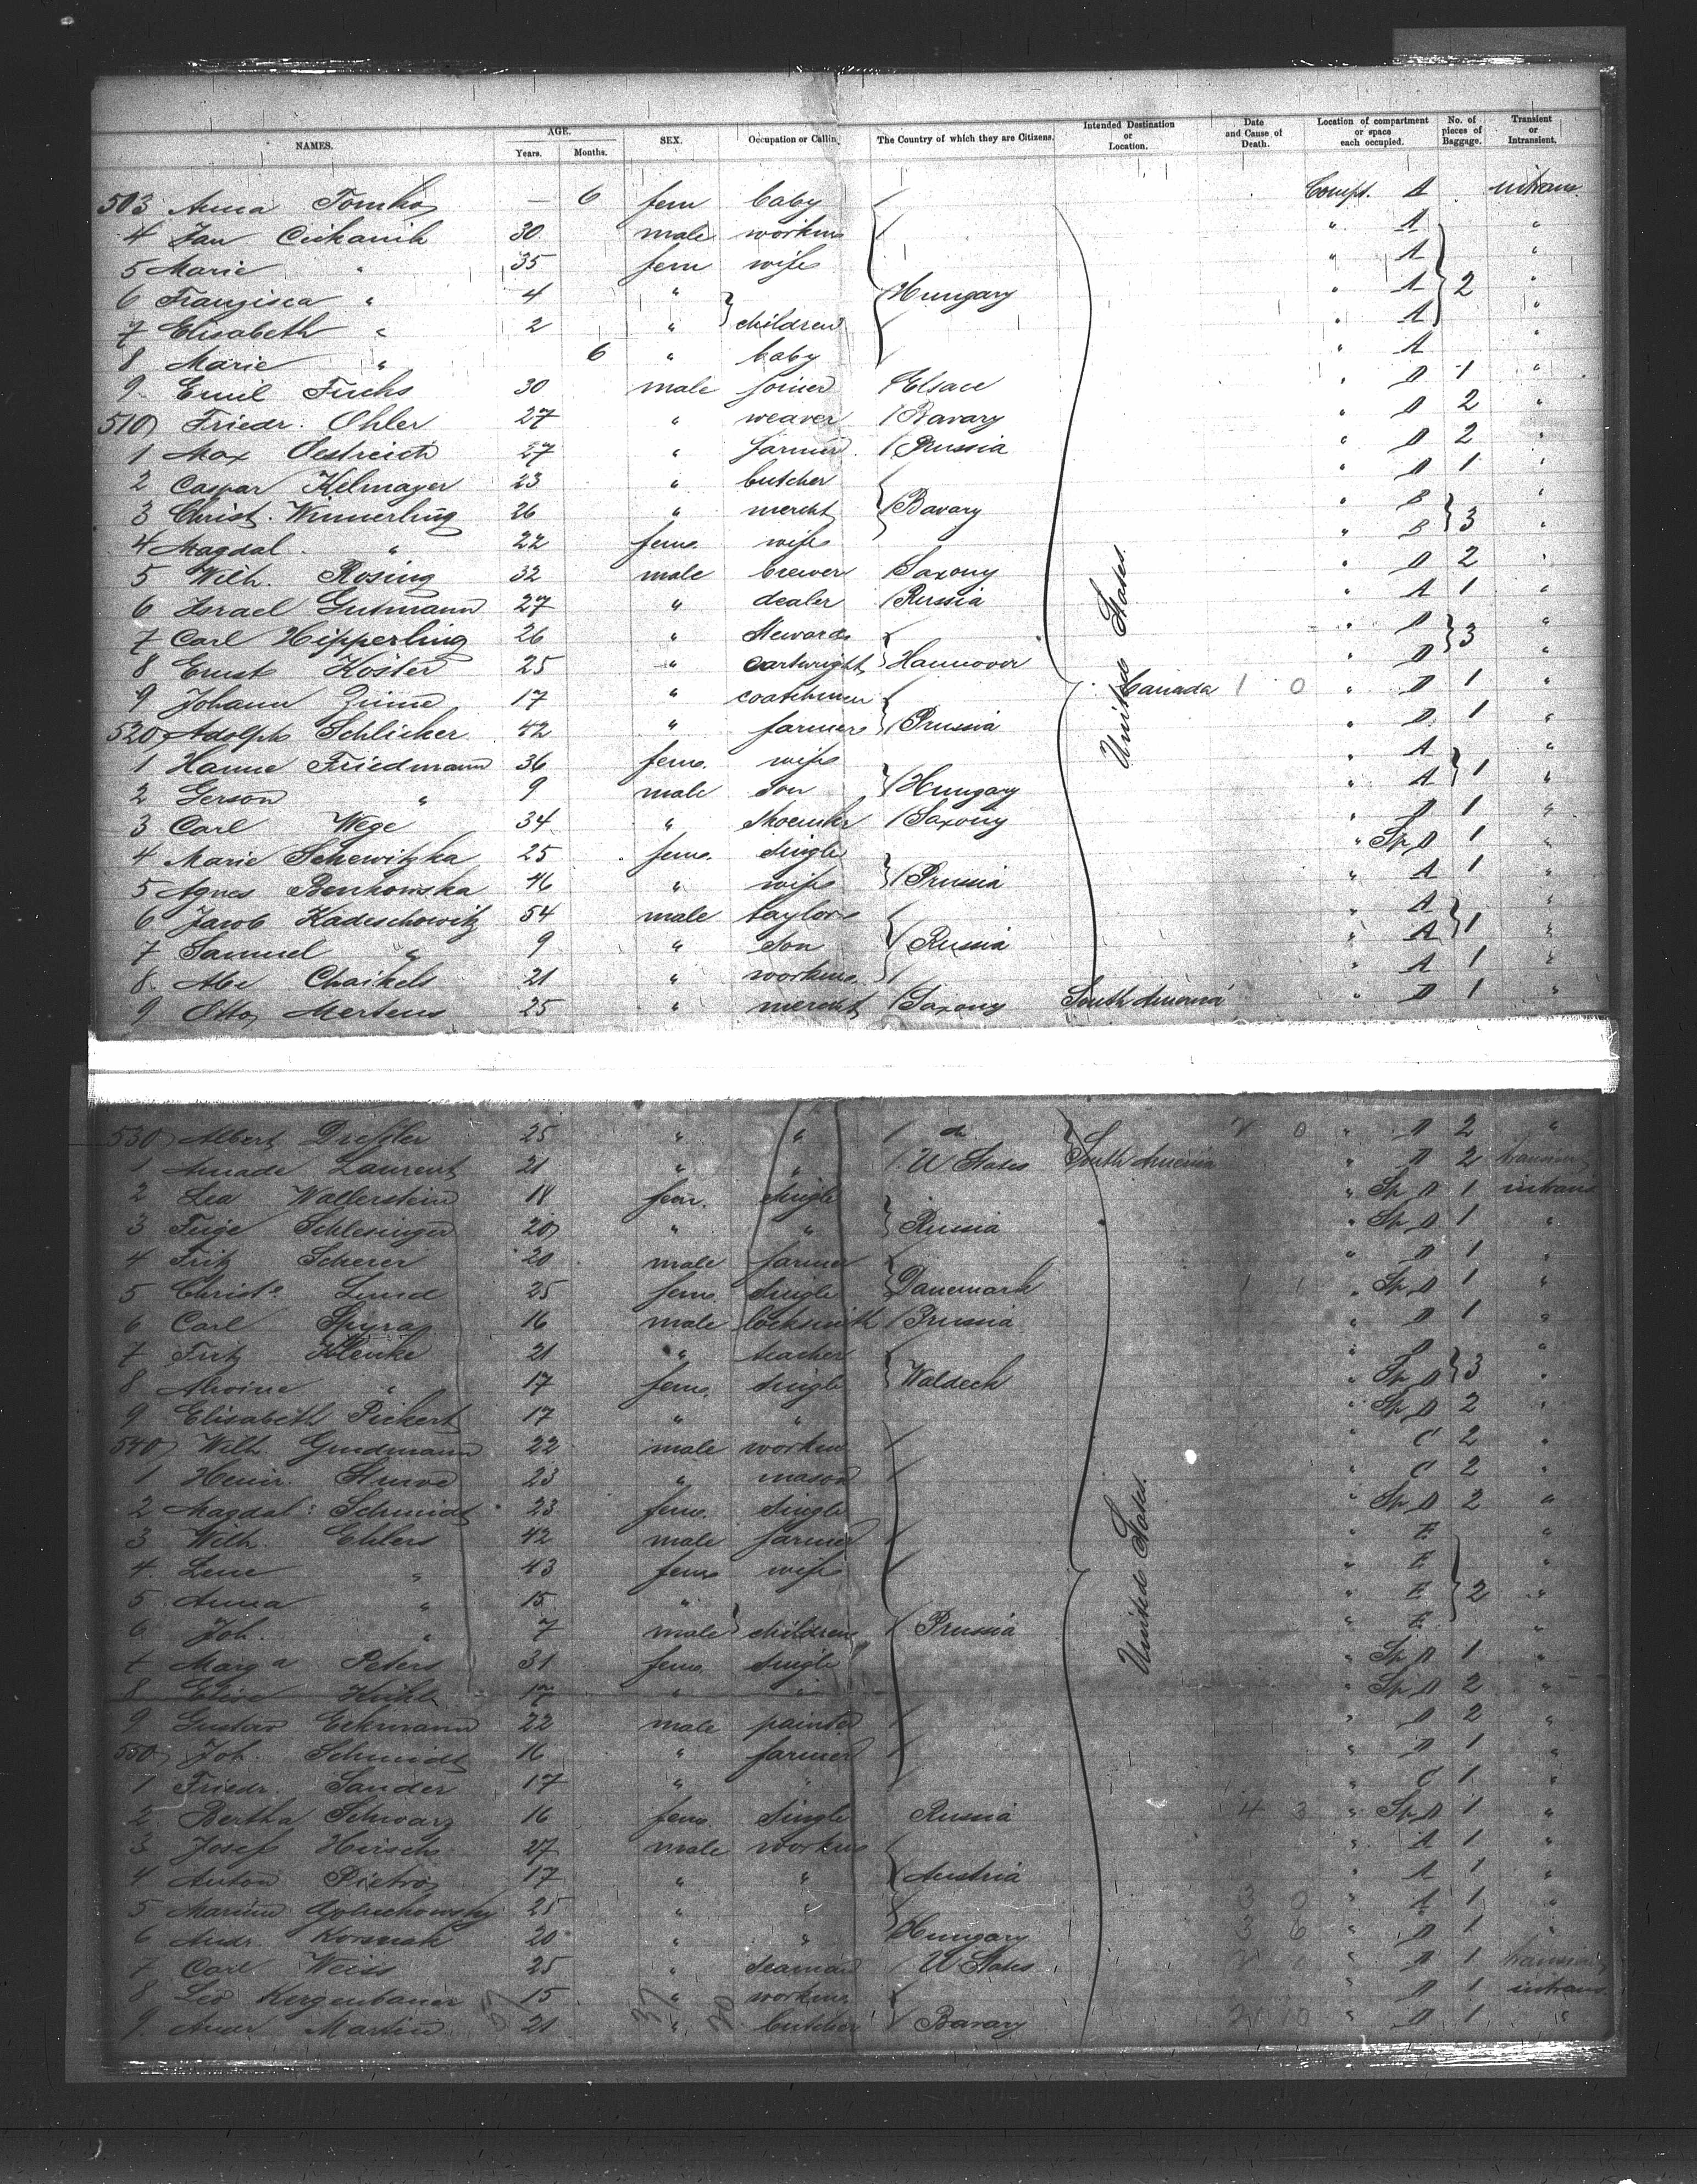 NAMES. AGE. Years. Months. SEX. Occupation or Callin The Country of which they are Citizens. Intended Destination or Location. Date and Cause of Death. Location of compartment or space each occupied. No. of pieces of Baggage. Transient or Intransient.
503 Anna Tomko — 6 fem baby Compt. A intrans
4 Jan 30 male workm " A "
5 Marie " 35 fem wife " A "
6 Franzisca " 4 " Hungary " A 2 "
7 Elisabeth " 2 " children " A "
8 Marie " 6 " baby " A "
9 Emil Fuchs 30 male joiner Elsace " D 1 "
510 Friedr. Ohler 27 " weaver Bavary " D 2 "
1 Max Oestreich 27 " farmer Prussia " D 2 "
2 Caspar Kelmayer 23 " butcher " D 1 "
3 Christ. Winnerling 26 " mercht Bavary " B 3 "
4 Magdal. " 22 fem. wife " B "
5 Wilh. Rosing 32 male brewer Saxony " D 2 "
6 Israel Gutmann 27 " dealer Russia " A 1 "
7 Carl Hipperling 26 " steward " D 3 "
8 Ernst Köster 25 " cartwright Hannover " D "
9 Johann 17 " coatchman Canada 1 0 " D 1 "
520 Adolph Schlicker 42 " farmer Prussia United States. " D 1 "
1 Hanne Friedmann 36 fem. wife " A 1 "
2 Gerson " 9 male son Hungary " A "
3 Carl Wege 34 " shoemkr Saxony " D 1 "
4 Marie Schewitzka 25 fem. single " Sp D 1 "
5 Agnes Benkowska 46 " wife Prussia " A 1 "
6 Jacob Kadeschowitz 54 male taylor " A 1 "
7 Samuel " 9 " son Russia " A "
8 Abe Chaikels 21 " workm. " A 1 "
9 Otto Mertens 25 " mercht Saxony South America " D 1 "
530 Albert Dressler 25 " " d 2 0 " D 2 "
1 Amade Laurent 21 " " U States South America " D 2 transient
2 Lea Wallerstein 18 fem. single " Sp D 1 intrans
3 Feige Schlesinger 20 " " Russia " Sp D 1 "
4 Fritz Scherer 20 male farmer " D 1 "
5 Christe Lund 25 fem. single Danemark 1 1 " Sp D 1 "
6 Carl Spyra 16 male locksmith Prussia " D 1 "
7 Fritz Klenke 21 " teacher " D 3 "
8 Alwine " 17 fem. single Waldeck " Sp D "
9 Elisabeth Pickert 17 " " " Sp D 2 "
540 Wilh. Grudmann 22 male workm " C 2 "
1 Heinr. Struve 23 " mason " C 2 "
2 Magdal: Schmidt 23 fem. single " Sp D 2 "
3 Wilh. Ehlers 42 male farmer " E "
4 Lene " 43 fem wife " E "
5 Anna " 15 " " E 2 "
6 Joh. " 7 male children Prussia United States. " E "
7 Marga Peters 31 fem. single " Sp D 1 "
8 Elise 17 " " " Sp D 2 "
9 Gustav Eckmann 22 male painter " D 2 "
550 Joh. Schmidt 16 " farmer " D 1 "
1 Friedr. Sander 17 " " " C 1 "
2 Bertha Schwarz 16 fem. single Russia 4 3 " Sp D 1 "
3 Josef Hirsch 27 male workm " A 1 "
4 Anton Pietro 17 " " Austria " A 1 "
5 25 " " 3 0 " A 1 "
6 Andr. Korsnak 20 " " Hungary 3 6 " D 1 "
7 Carl Weiss 25 " seaman U States 2 0 " D 1 transient
8 Leo Kergenbauer 15 " workm. " D 1 intrans.
9 Andr Martin 21 " butcher Bavary 2 10 " D 1 "